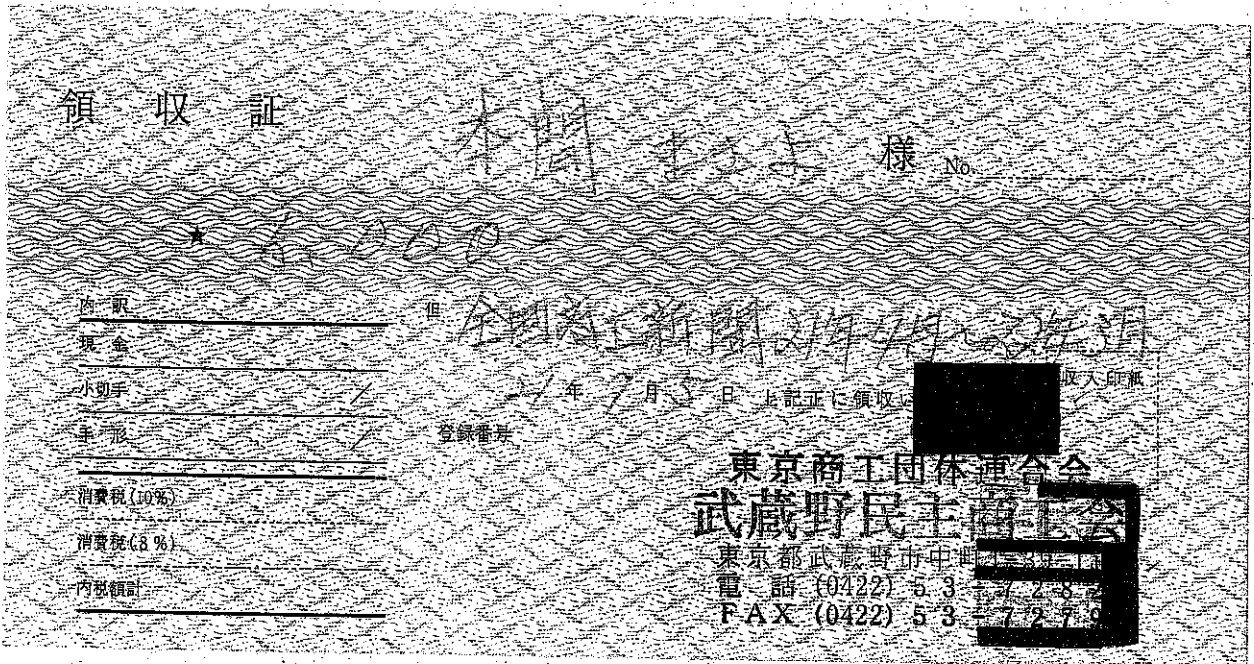 領 収 証
本間 まさよ 様 No.
★ 6,000-
内 訳
現 金
小切手
手 形
消費税(10%)
消費税(8%)
内税額計
但 全国商工新聞 21年4月~ 3月
21年 9月5日 上記正に領収い
収入印紙
登録番号
東京商工団体連合会
武蔵野民主商工会
東京都武蔵野市中町
電 話 (0422) 53-728
FAX (0422) 53-7279